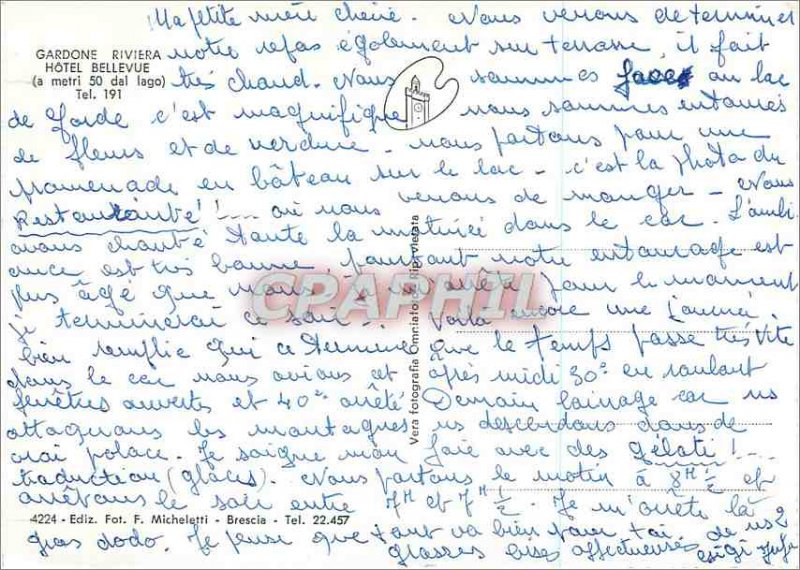 Ma petite mère chérie. Nous venons de terminer
GARDONE RIVIERA
HÔTEL BELLEVUE
(a metri 50 dal lago)
Tel. 191
notre repas également sur terrasse, il fait
très chaud. Nous sommes face au lac
de Garde c'est magnifique nous sommes entourés
de fleurs et de verdure. nous partons pour une
promenade en bâteau sur le lac - c'est la photo du
Restaurant! .... où nous venons de manger - Nous
avons chanté toute la matinée dans le car. L'ambi
ance est très bonne, pourtant notre entourage est
plus âgé que nous. pour le moment
je terminerai ce soir. - Voilà encore une journée
bien remplie qui se termine que le temps passe très vite
dans le car nous avions cet après midi 30° en roulant
fenêtres ouvertes et 40° arrêté Demain lainage car ns
attaquons les montagnes ns descendons dans de
vrai palace. Je soigne mon foie avec des gélati! ...
traduction (glaces). Nous partons le matin à 8H ½ et
arrêtons le soir entre 7H et 7H ½ - Je m'arrête là
4224 - Ediz. Fot. F. Micheletti - Brescia - Tel. 22.457
gros dodo. Je pense que tout va bien pour toi. de ns 2
grosses bises affectueuses
Vera fotografia Omniafoto Rip. vietata
CPAPHIL